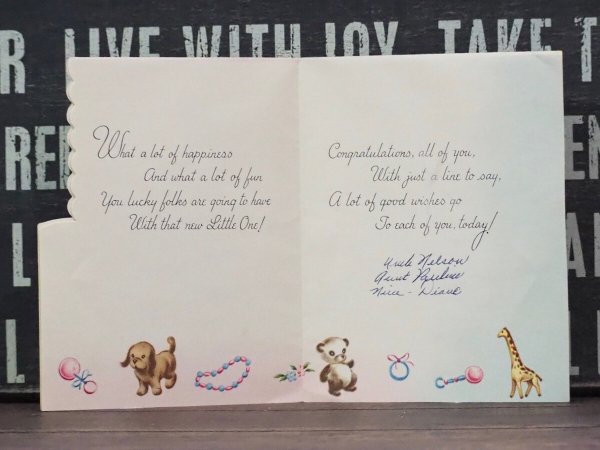 R LIVE WITH JOY TAKE T
What a lot of happiness
And what a lot of fun
You lucky folks are going to have
With that new Little One!
Congratulations, all of you,
With just a line to say,
A lot of good wishes go
To each of you, today!
Uncle Nelson
Aunt Pauline
Niece - Diane